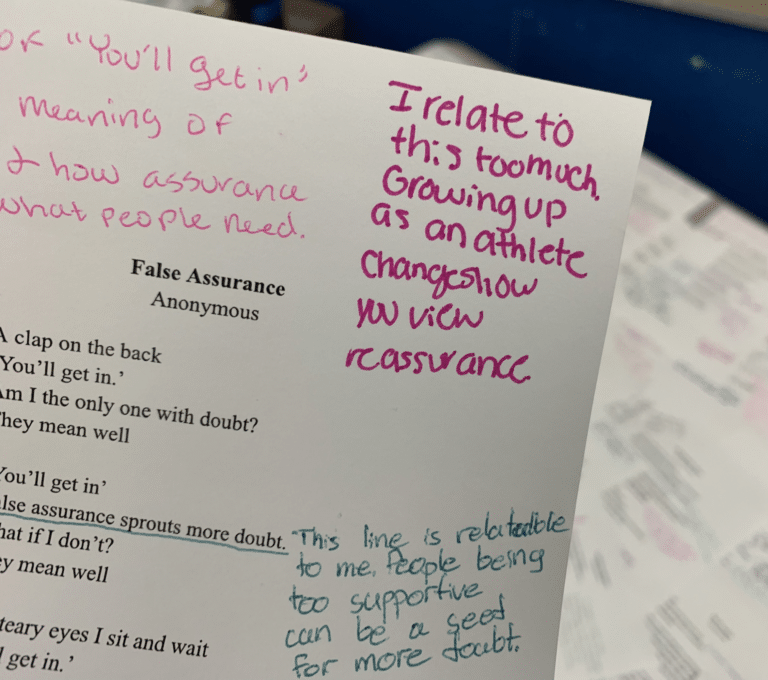 or "You'll get in"
meaning of
& how assurance
what people need.
I relate to
this too much.
Growing up
as an athlete
changes how
you view
reassurance.
False Assurance
Anonymous
A clap on the back
You'll get in.'
Am I the only one with doubt?
They mean well
You'll get in'
lse assurance sprouts more doubt.
hat if I don't?
ey mean well
teary eyes I sit and wait
l get in.'
This line is relatable
to me. People being
too supportive
can be a seed
for more doubt.